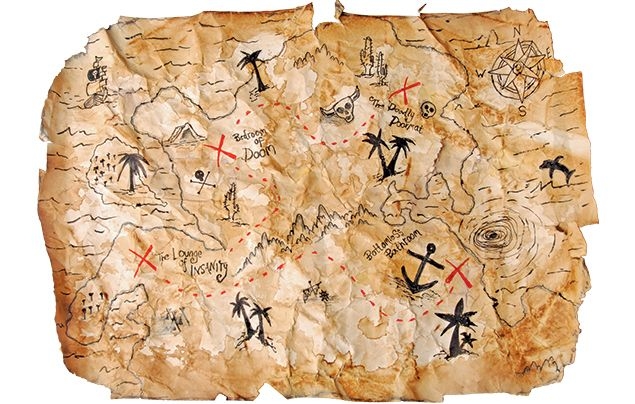 N
W E
S
The Deadly
Doormat
Bedroom
of
Doom
The Lounge
of
Insanity
Bottomless
Bathroom